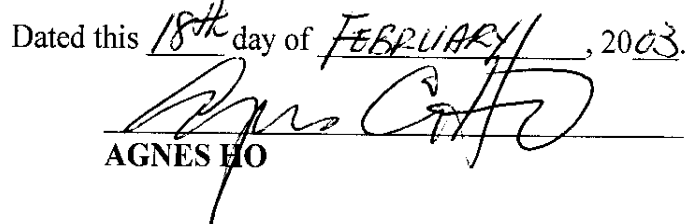 Dated this 18th day of FEBRUARY, 2003.
AGNES HO